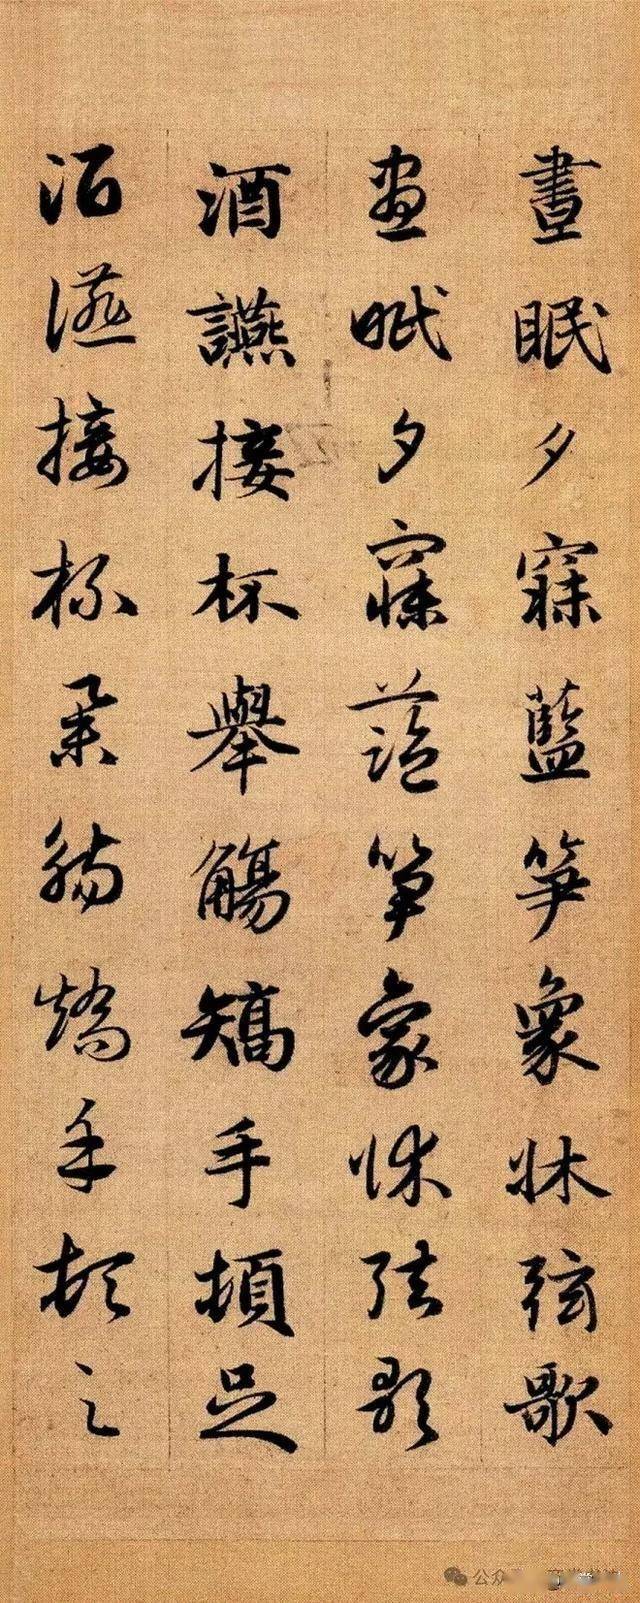 晝眠夕寐藍笋象牀弦歌
晝眠夕寐藍笋象牀弦歌
酒讌接杯舉觴矯手頓足
酒讌接杯舉觴矯手頓足
公众